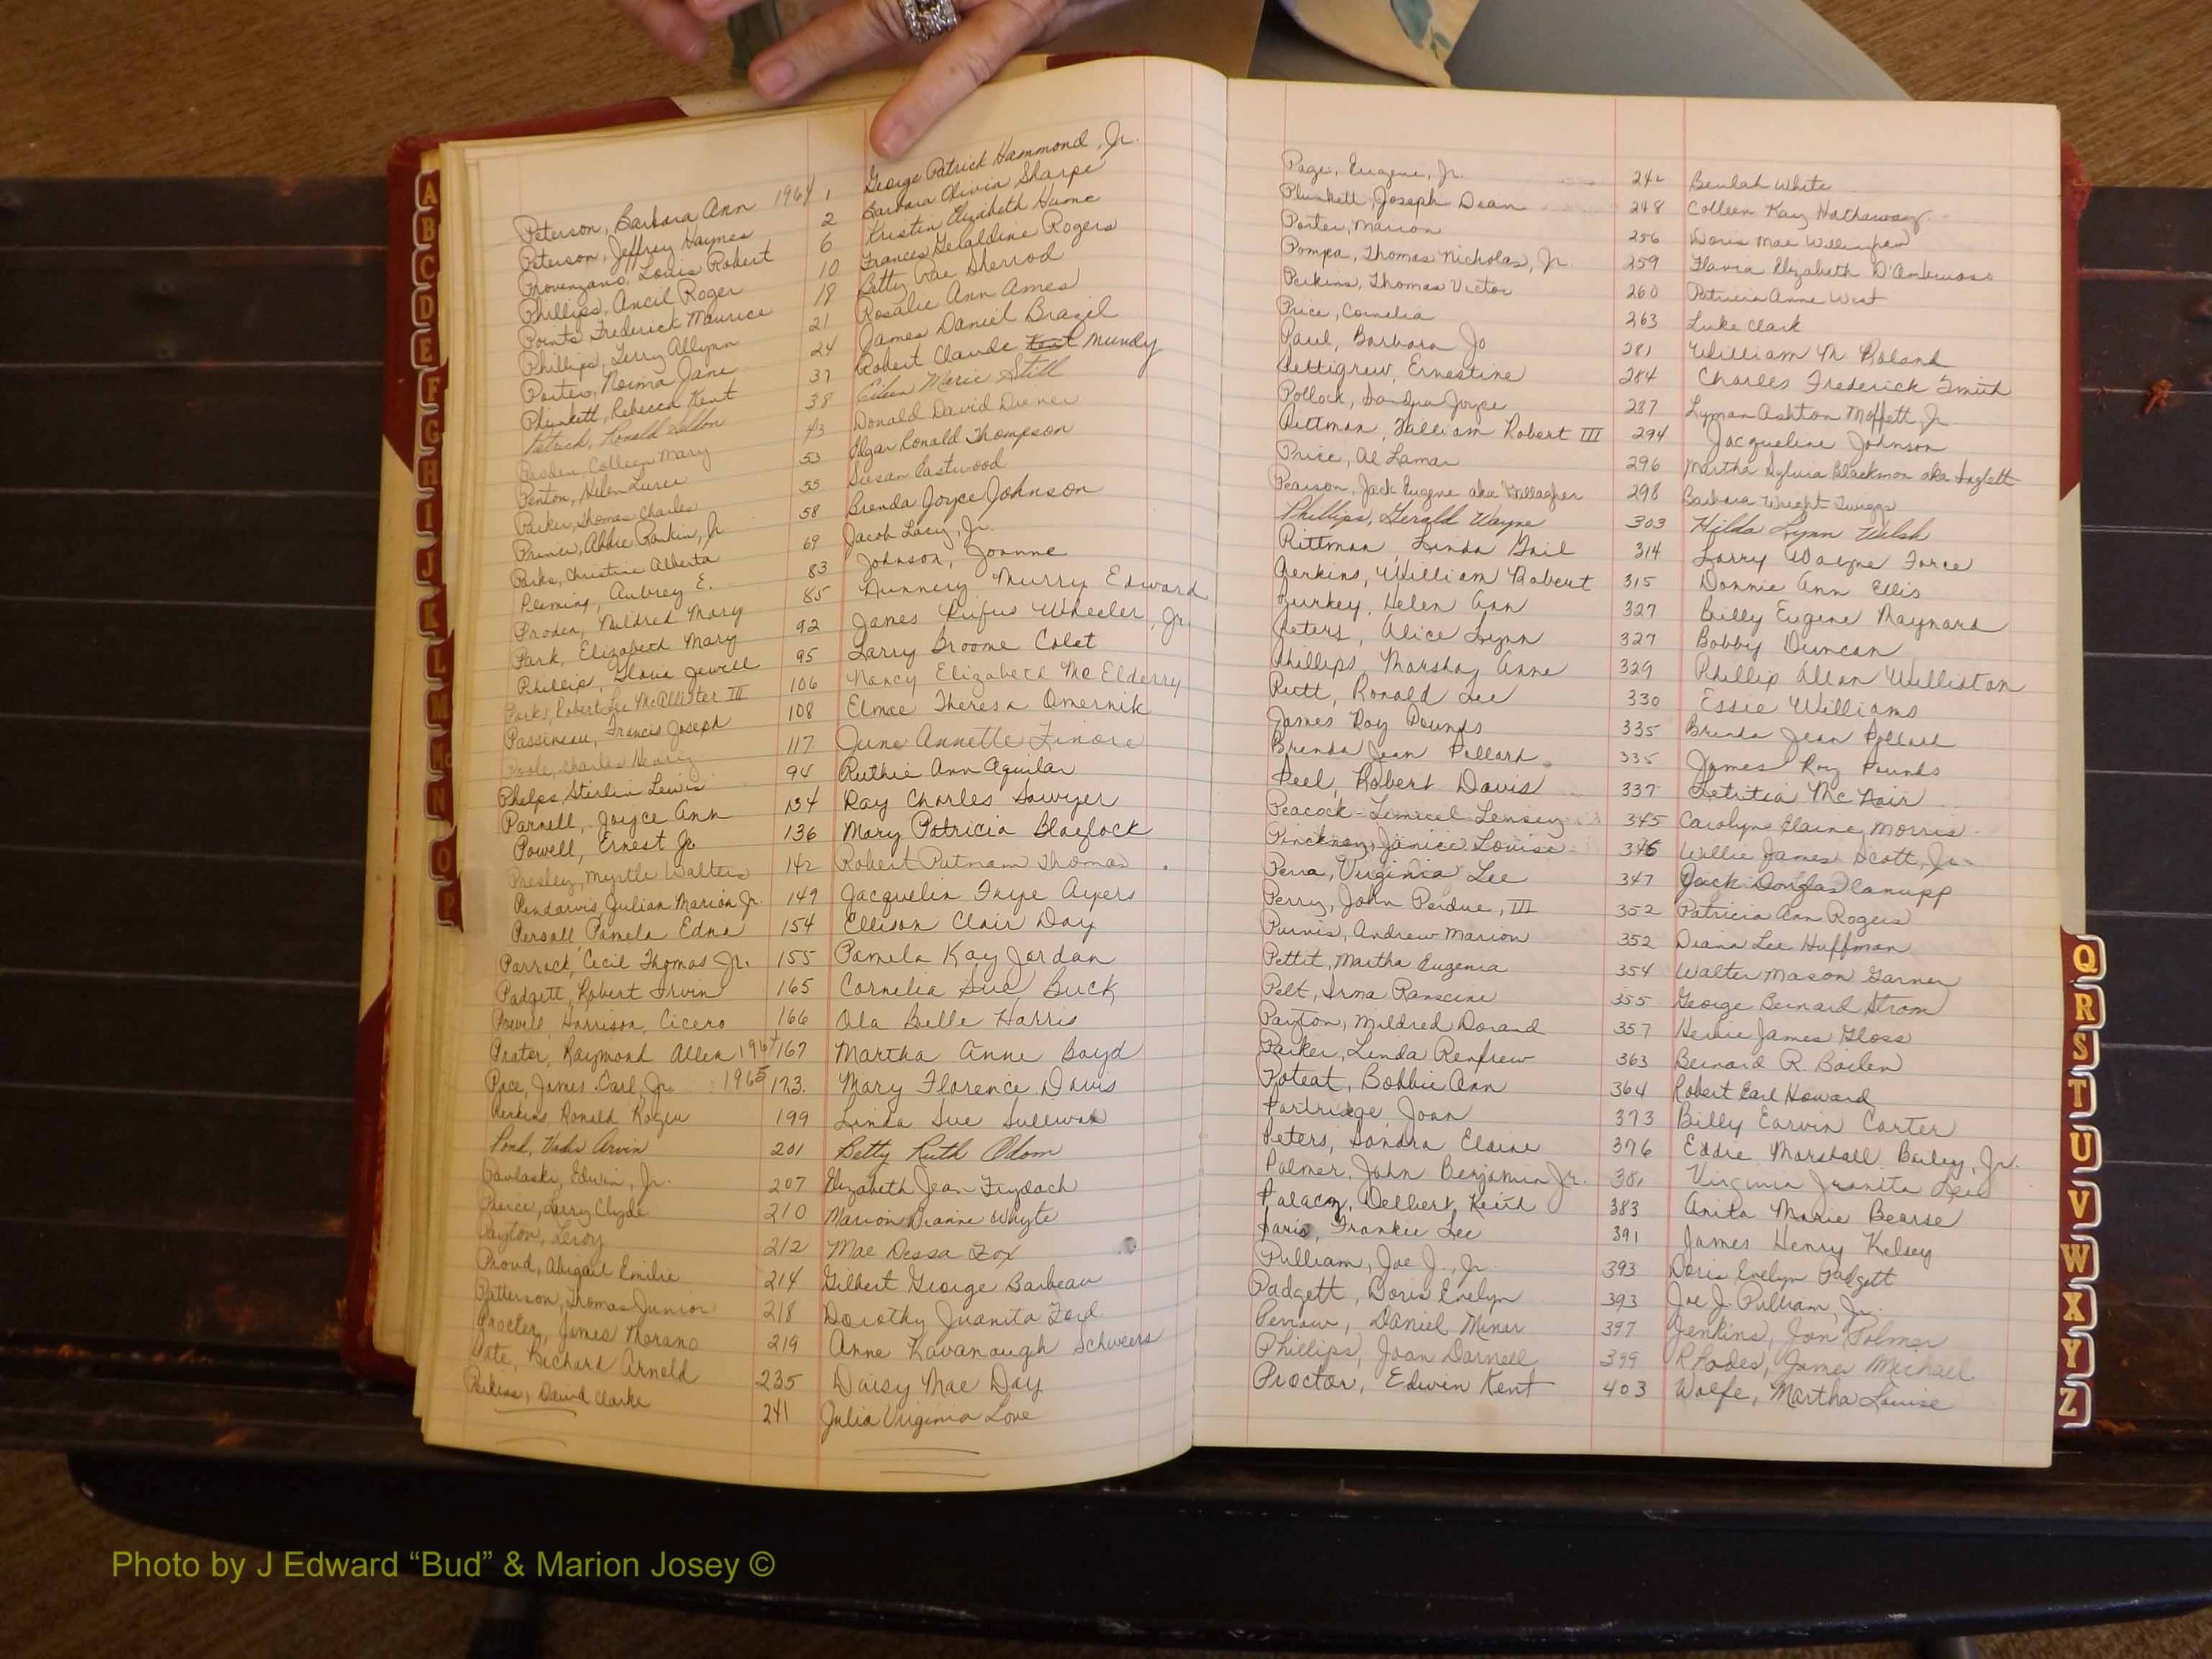 Peterson, Barbara Ann 1964 1 George Patrick Hammond, Jr.
Peterson, Jeffrey Haynes 2 Barbara Olivia Sharpe
Provenzano, Louis Robert 6 Kristin Elizabeth Hume
Phillips, Ancil Roger 10 Frances Geraldine Rogers
Points, Frederick Maurice 18 Betty Rae Sherrod
Phillips, Terry Allynn 21 Rosalie Ann Ames
Porter, Norma Jane 24 James Daniel Brazil
Plunkett, Rebecca Kent 37 Robert Claude Kent Mundy
Patrick, Ronald 38 Eileen Marie Still
Colleen Mary 43 Donald David Diener
Penton, Helen 53 Edgar Ronald Thompson
Parker, Thomas Charles 55 Susan Eastwood
Prince, Abbie Rankin, Jr 58 Brenda Joyce Johnson
Parks, Christine Alberta 69 Jacob Lacy, Jr.
Pleming, Aubrey E. 83 Johnson, Joanne
Proden, Mildred Mary 85 Dunnery, Murry Edward
Park, Elizabeth Mary 92 James Rufus Wheeler, Jr.
Phillips, Gloria Jewell 95 Larry Broome Colet
Parks, Robert Lee McAllister III 106 Nancy Elizabeth McElderry
Passineau, Francis Joseph 108 Elmae Theresa Omernik
Poole, Charles Henry 117 June Annette Finore
Phelps, Sterlin Lewis 94 Ruthie Ann Aguilar
Parnell, Joyce Ann 134 Ray Charles Sawyer
Powell, Ernest Jr. 136 Mary Patricia Blaylock
Presley, Myrtle Walters 142 Robert Putnam Thomas
Pendarvis, Julian Marion Jr. 149 Jacquelin Frye Ayers
Persall, Pamela Edna 154 Ellison Clair Day
Parrack, Cecil Thomas Jr. 155 Pamela Kay Jordan
Padgett, Robert Irvin 165 Cornelia Sue Buck
Powell, Harrison, Cicero 166 Ola Belle Harris
Prater, Raymond Allen 1964 167 Martha Anne Boyd
Pace, James Carl, Jr. 1965 173. Mary Florence Davis
Perkins, Ronald Roger 199 Linda Sue Sullivan
Pond, Arvin 201 Betty Ruth Odom
Pavlaski, Edwin, Jr. 207 Elizabeth Jean Frydach
Pierce, Larry Clyde 210 Marion Dianne Whyte
Payton, Leroy 212 Mae Dessa Fox
Proud, Abigail Emilie 214 Gilbert George Barbeau
Patterson, Thomas Junior 218 Dorothy Juanita Ford
Procter, James Morano 219 Anne Kavanaugh Schweers
Pate, Richard Arnold 235 Daisy Mae Day
Perkins, David Clarke 241 Julia Virginia Love
Page, Eugene, Jr. 242 Beulah White
Plunkett, Joseph Dean 248 Colleen Kay Hathaway
Porter, Marion 256 Doris Mae Willingham
Pompa, Thomas Nicholas, Jr. 259 Flavia Elizabeth D'Ambrosio
Perkins, Thomas Victor 260 Patricia Anne West
Price, Cornelia 263 Luke Clark
Paul, Barbara Jo 281 William M. Roland
Pettigrew, Ernestine 284 Charles Frederick Smith
Pollock, Sandra Joyce 287 Lyman Ashton Moffett, Jr
Pittman, William Robert III 294 Jacqueline Johnson
Price, Al Lamar 296 Martha Sylvia Blackmon aka Inglett
Pearson, Jack Eugene aka Gallagher 298 Barbara Wright Twiggs
Phillips, Gerald Wayne 303 Hilda Lynn Welsh
Pittman, Linda Gail 314 Larry Wayne Force
Perkins, William Robert 315 Donnie Ann Ellis
Purkey, Helen Ann 327 Billy Eugene Maynard
Peters, Alice Lynn 327 Bobby Duncan
Phillips, Marshay Anne 329 Phillip Allan Williston
Putt, Ronald Lee 330 Essie Williams
James Roy Pounds 335 Brenda Jean Pollard
Brenda Jean Pollard 335 James Roy Pounds
Peel, Robert Davis 337 Letitia McNair
Peacock - Lemuel Lensey 345 Carolyn Elaine Morris
Pinckney, Janice Louise 346 Willie James Scott, Jr.
Perra, Virginia Lee 347 Jack Douglas Canupp
Perry, John Perdue, III 352 Patricia Ann Rogers
Purvis, Andrew Marion 352 Diana Lee Huffman
Pettit, Martha Eugenia 354 Walter Mason Garner
Pelt, Irma Ranseine 355 George Bernard Strom
Payton, Mildred Dorand 357 James Gloss
Parker, Linda Renfrew 363 Bernard R. Boilen
Poteat, Bobbie Ann 364 Robert Earl Howard
Partridge, Joan 373 Billy Earvin Carter
Peters, Sandra Elaine 376 Eddie Marshall Bailey, Jr.
Palmer, John Benjamin Jr. 381 Virginia Juanita Lee
Palacz, Delbert Keith 383 Anita Marie Bearse
Paris, Frankie Lee 391 James Henry Kelsey
Pulliam, Joe J., Jr. 393 Doris Evelyn Padgett
Padgett, Doris Evelyn 393 Joe J. Pulliam, Jr.
Perrow, Daniel Miner 397 Jenkins, Jon Palmer
Phillips, Joan Darnell 399 Rhodes, James Michael
Proctor, Edwin Kent 403 Wolfe, Martha Louise
A
B
C
D
E
F
G
H
I
J
K
L
M
Mc
N
O
P
Q
R
S
T
U
V
W
X
Y
Z
Photo by J Edward “Bud” & Marion Josey ©